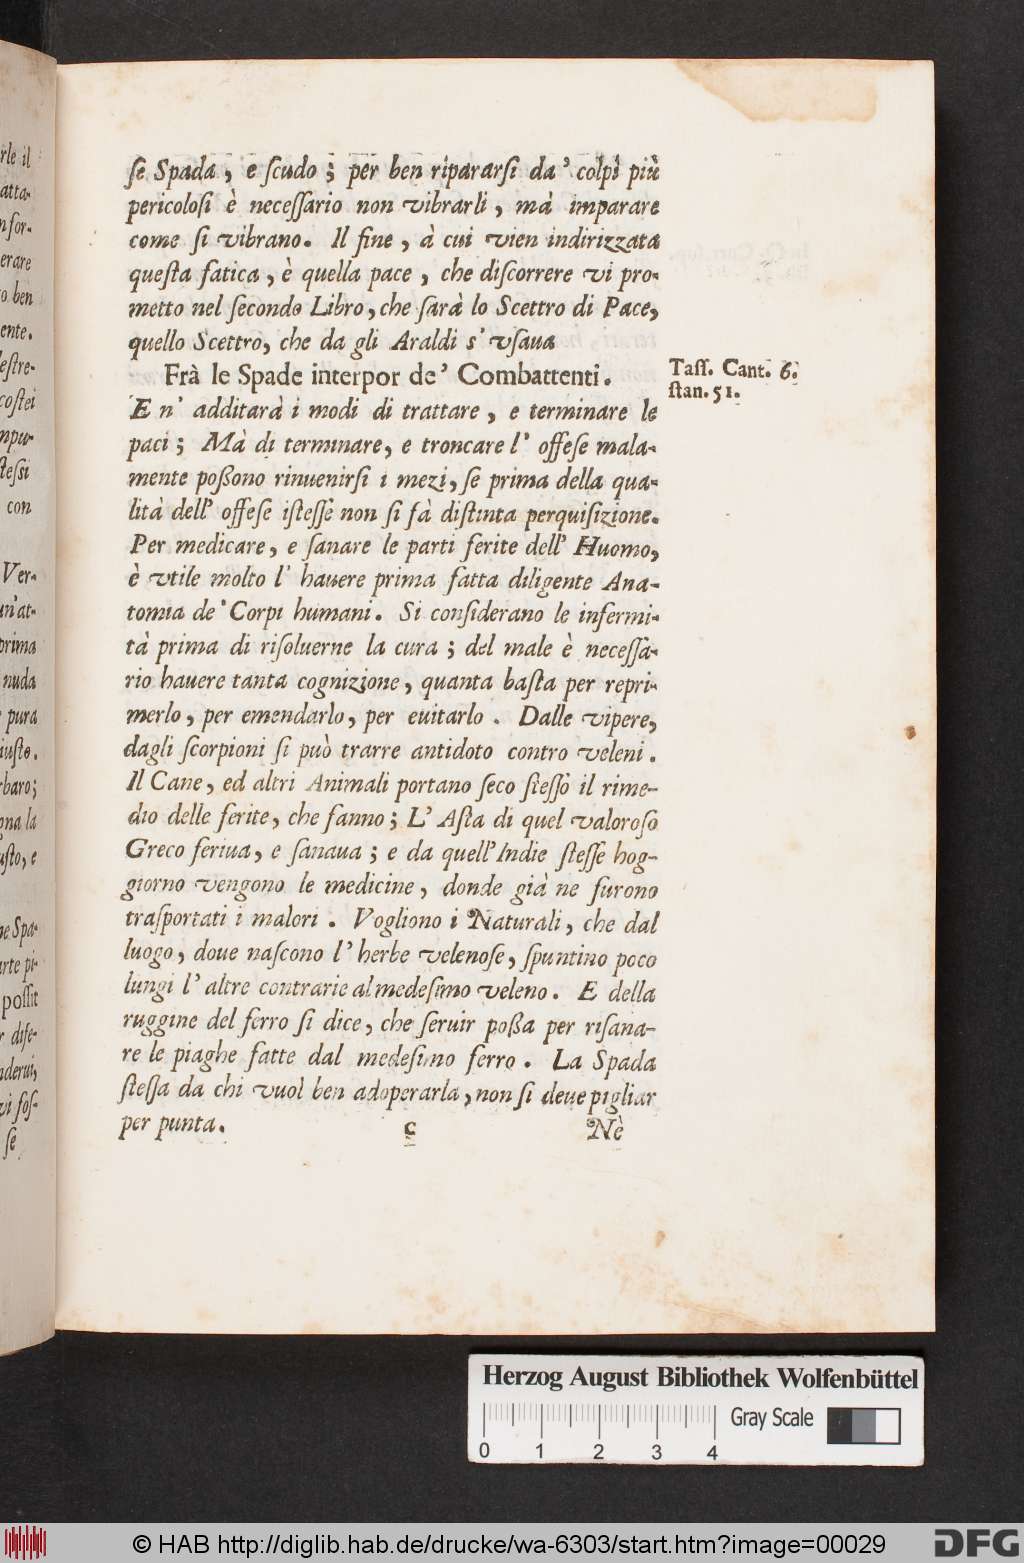 se Spada, e ſcudo; per ben ripararſi da' colpi più
pericoloſi è neceſſario non vibrarli, mà imparare
come ſi vibrano. Il fine, à cui vien indirizzata
queſta fatica, è quella pace, che diſcorrere vi pro-
metto nel ſecondo Libro, che ſarà lo Scettro di Pace,
quello Scettro, che da gli Araldi s' vſaua
Frà le Spade interpor de' Combattenti.
Taſſ. Cant. 6.
ſtan. 51.
E n' additarà i modi di trattare, e terminare le
paci; Mà di terminare, e troncare l' offeſe mala-
mente poßono rinuenirſi i mezi, ſe prima della qua-
lità dell' offeſe iſteſſe non ſi fà diſtinta perquiſizione.
Per medicare, e ſanare le parti ferite dell' Huomo,
è vtile molto l' hauere prima fatta diligente Ana-
tomia de' Corpi humani. Si conſiderano le infermi-
tà prima di riſoluerne la cura; del male è neceſſa-
rio hauere tanta cognizione, quanta baſta per repri-
merlo, per emendarlo, per euitarlo. Dalle vipere,
dagli ſcorpioni ſi può trarre antidoto contro veleni.
Il Cane, ed altri Animali portano ſeco ſteſſo il rime-
dio delle ferite, che fanno; L' Aſta di quel valoroſo
Greco feriua, e ſanaua; e da quell' Indie ſteſſe hog-
giorno vengono le medicine, donde già ne furono
traſportati i malori. Vogliono i Naturali, che dal
luogo, doue naſcono l' herbe velenoſe, ſpuntino poco
lungi l' altre contrarie al medeſimo veleno. E della
ruggine del ferro ſi dice, che ſeruir poßa per riſana-
re le piaghe fatte dal medeſimo ferro. La Spada
ſteſſa da chi vuol ben adoperarla, non ſi deue pigliar
per punta. c Nè
Herzog August Bibliothek Wolfenbüttel
Gray Scale
0 1 2 3 4
© HAB http://diglib.hab.de/drucke/wa-6303/start.htm?image=00029
DFG